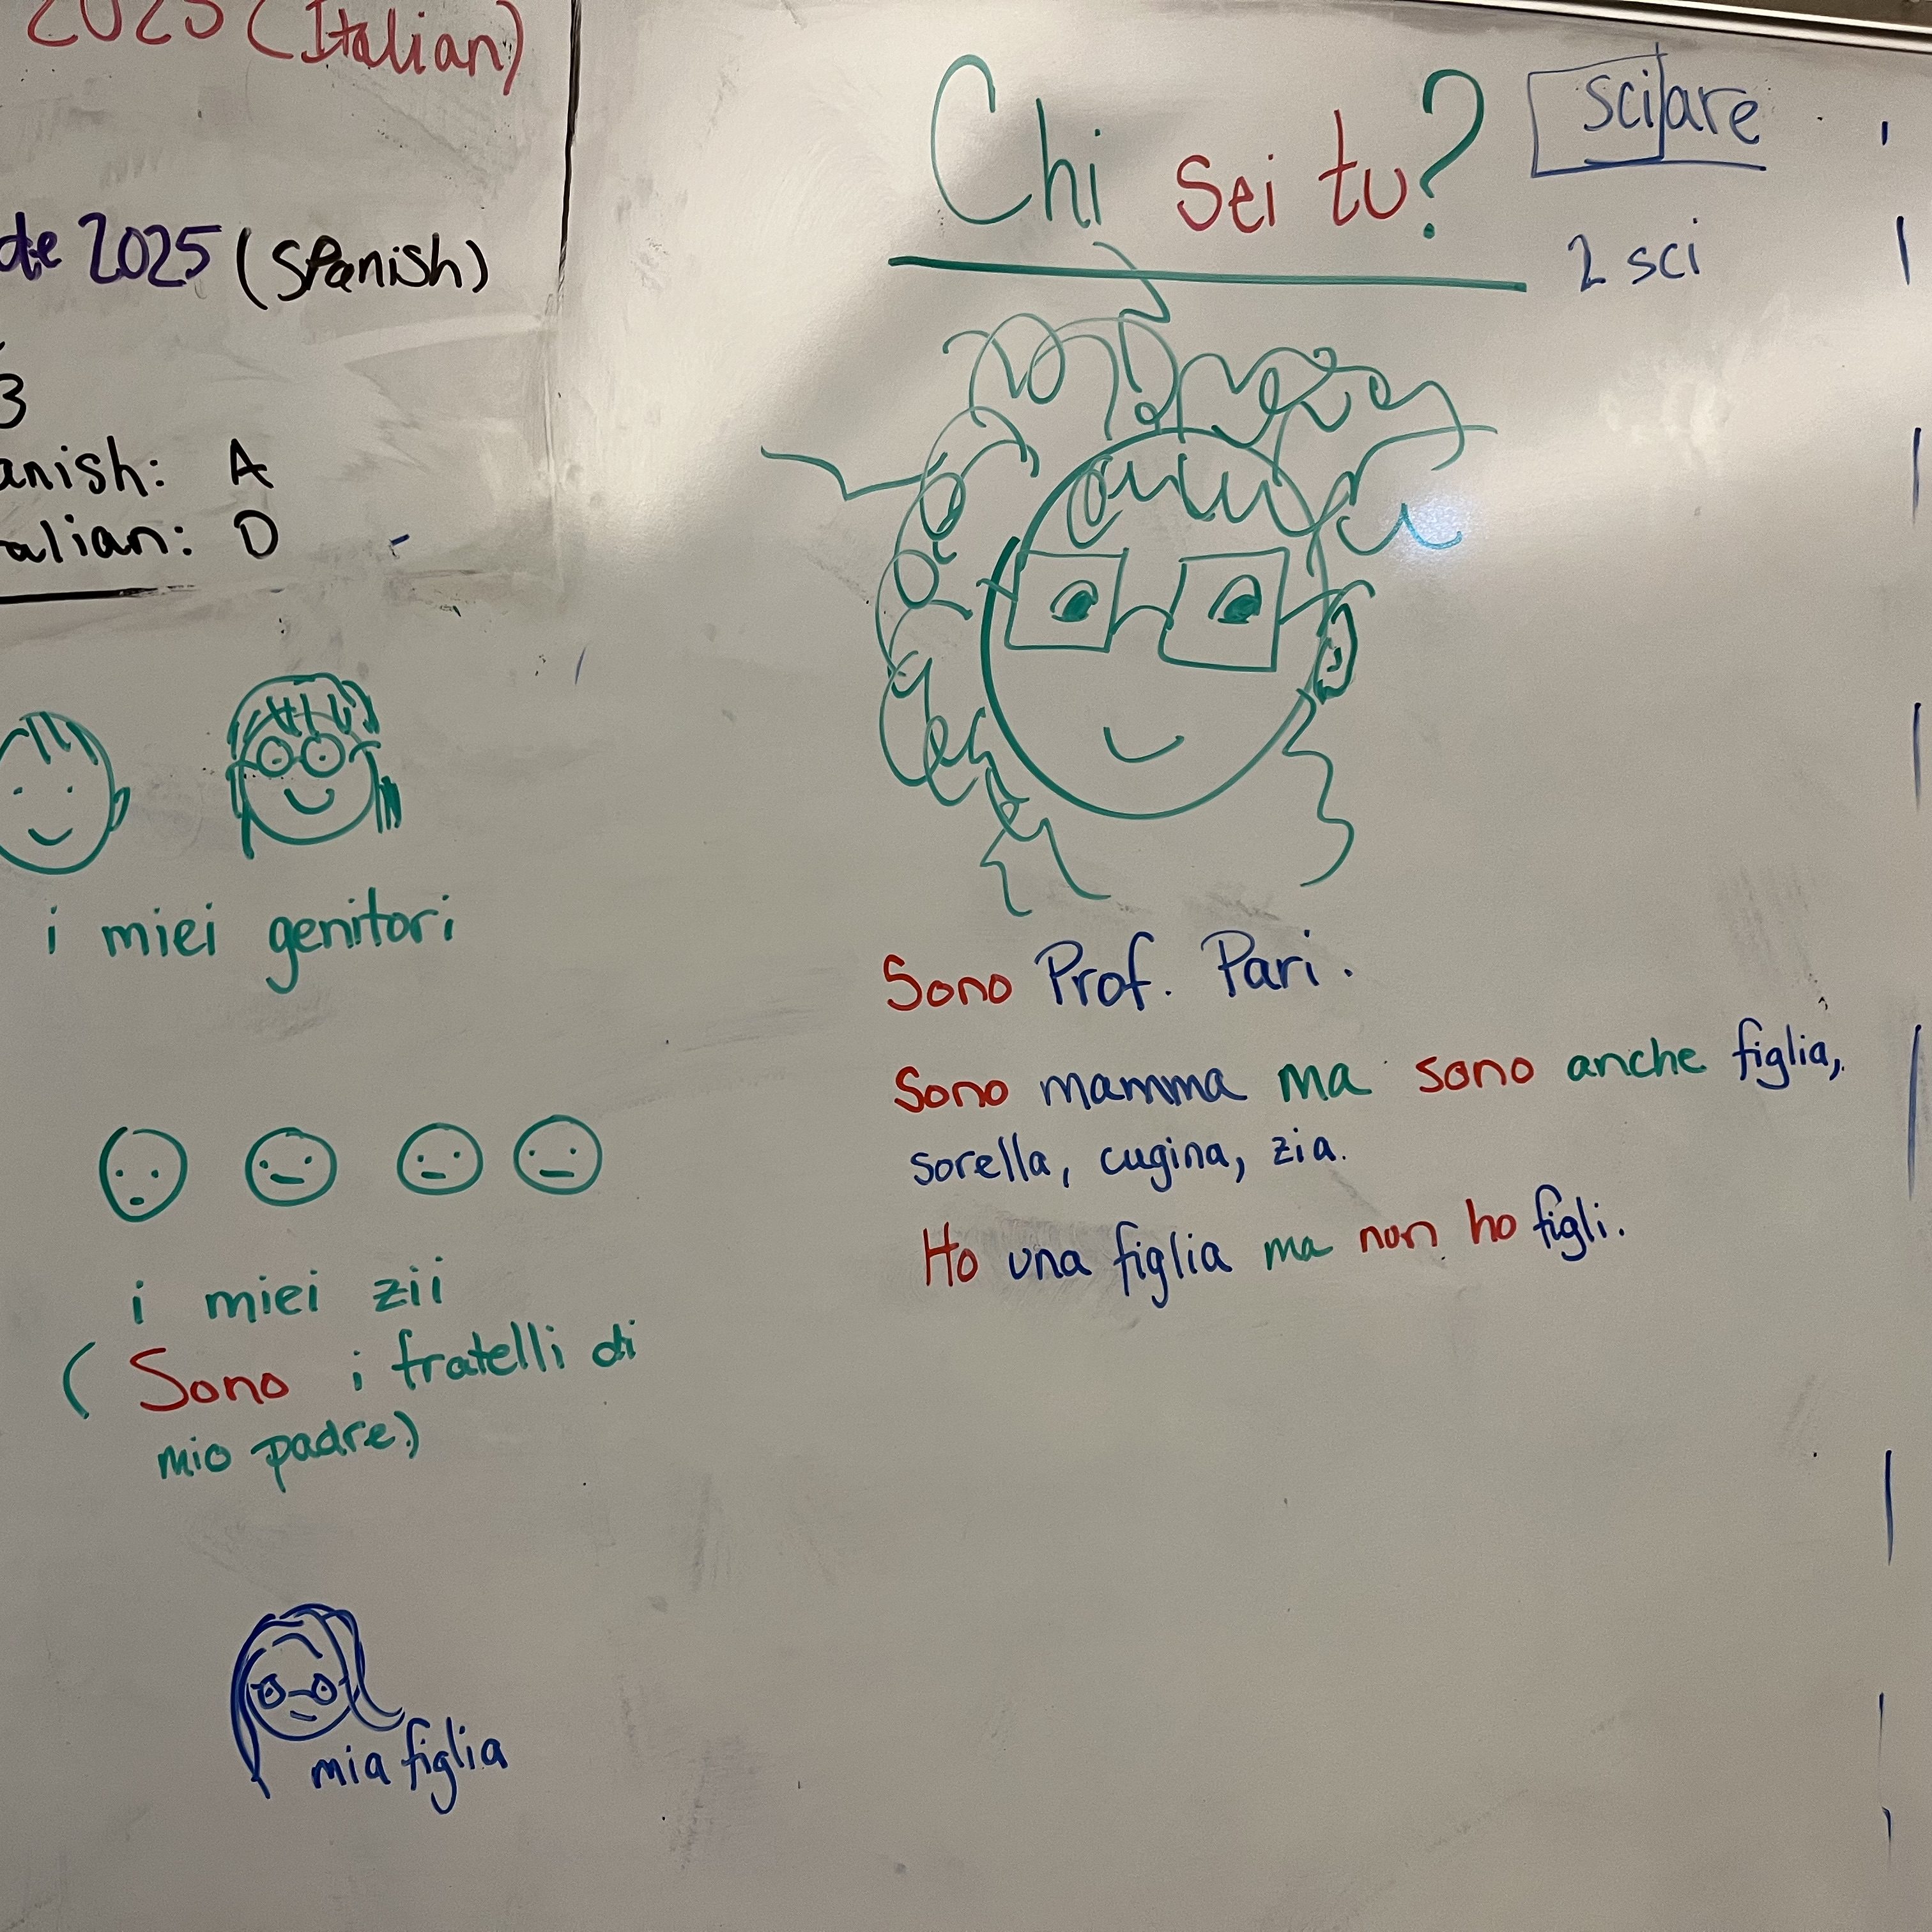 2025 (Italian)
de 2025 (Spanish)
3
anish: A
alian: D
i miei genitori
i miei zii
( Sono i fratelli di
mio padre)
mia figlia
Chi sei tu?
sciare
2 sci
Sono Prof. Pari.
Sono mamma ma sono anche figlia,
sorella, cugina, zia.
Ho una figlia ma non ho figli.